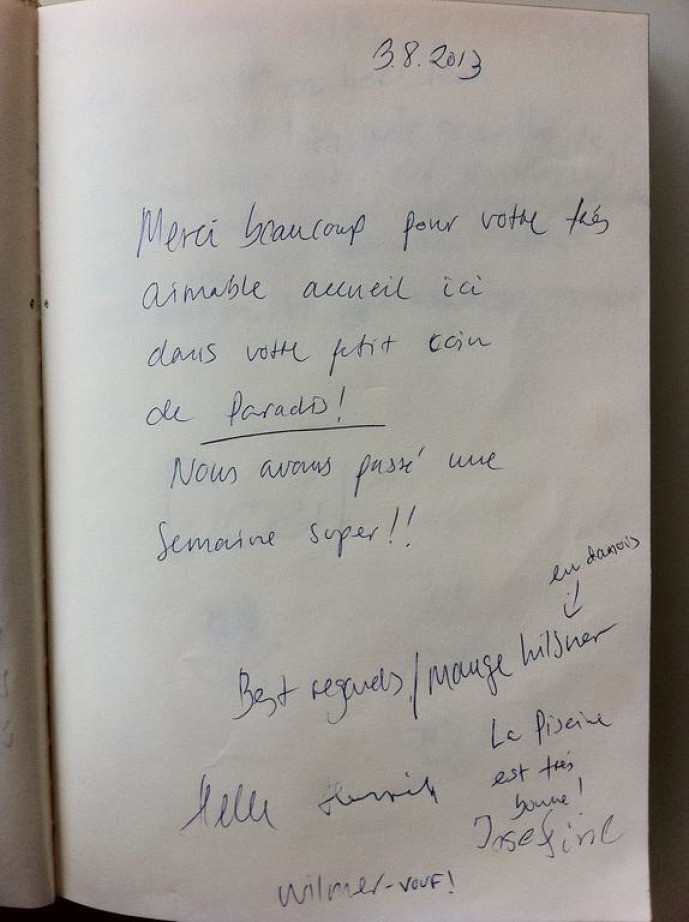 3.8.2013
Merci beaucoup pour votre trés
aimable accueil ici
dans votre petit coin
de Paradis!
Nous avons passé une
Semaine super!!
en danois
Best regards/Mange hilsner
La Piscine
est trés
bonne!
Helle Henrik
Josefine
Wilmer-vouf!